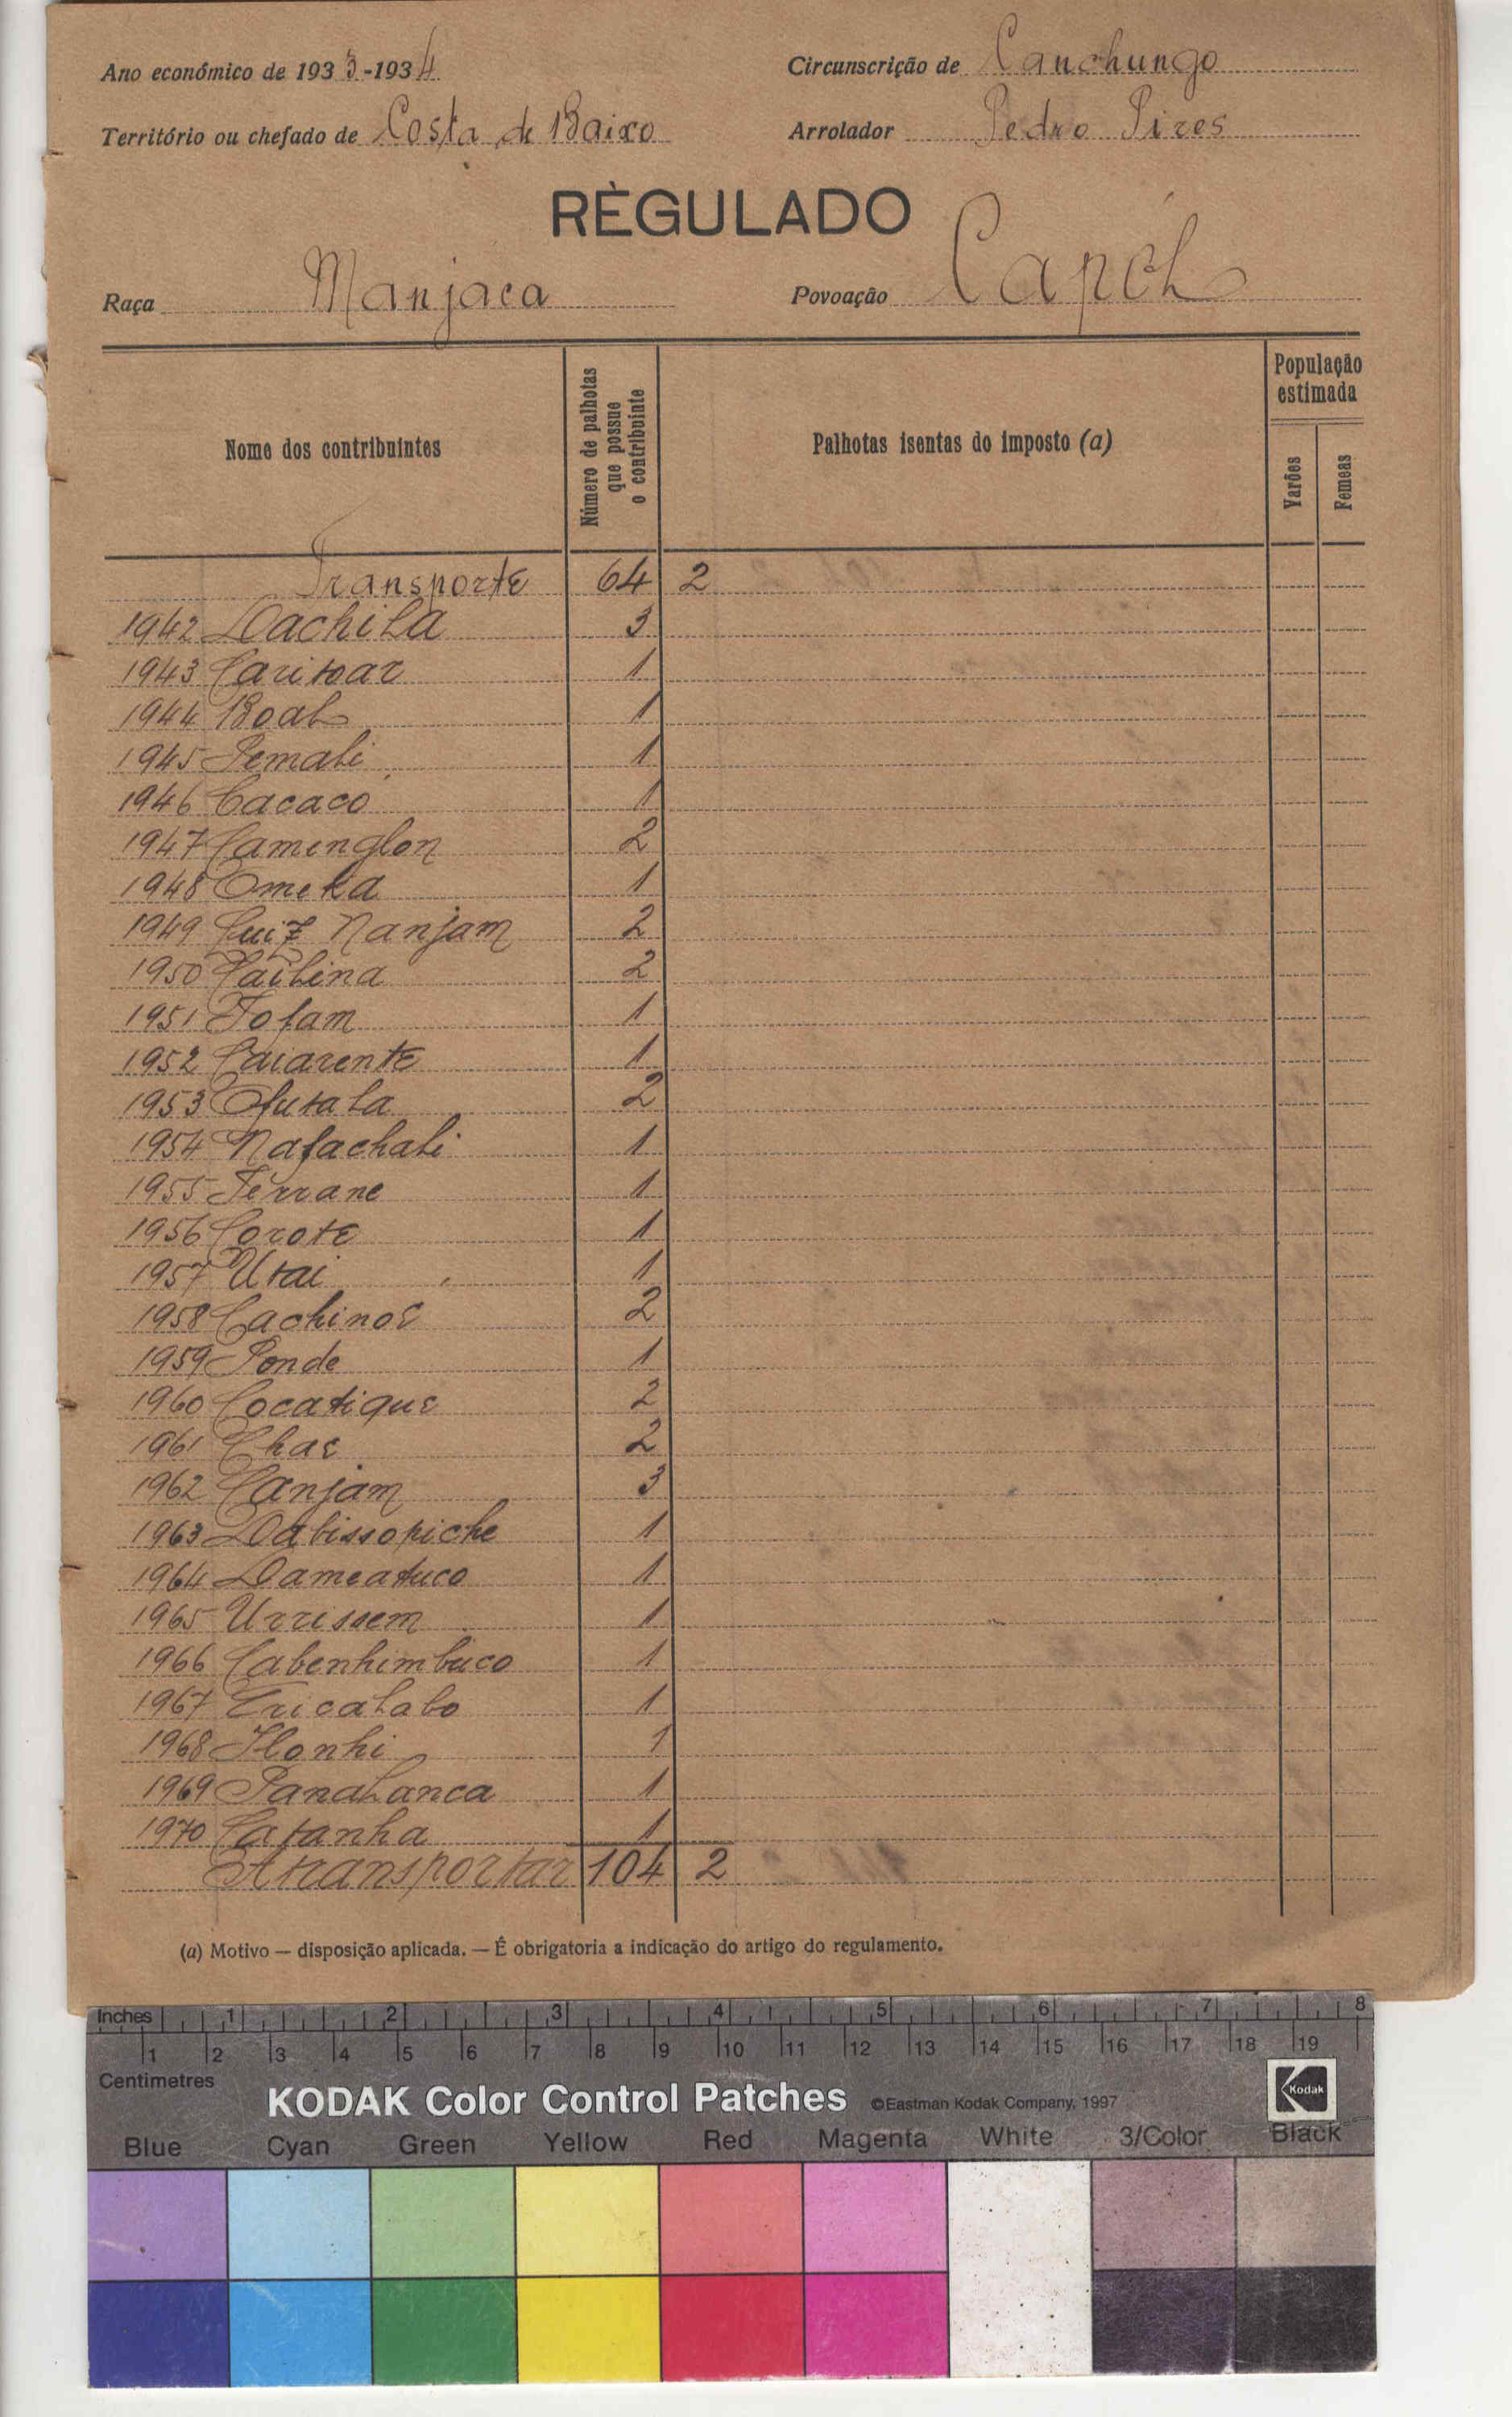 Ano económico de 1933-1934
Circunscrição de Canchungo
Território ou chefado de Costa de Baixo
Arrolador Pedro Pires
RÈGULADO
Raça Manjaca
Povoação Capól
Nome dos contribuintes
Número de palhotas que possue o contribuinte
Palhotas isentas do imposto (a)
População estimada
Varões
Femeas
Transporte 64 2
1942 Dachila 3
1943 Caritoar 1
1944 Boal 1
1945 Pemali 1
1946 Cacaco 1
1947 Camenglon 2
1948 Omeka 1
1949 Luiz Nanjam 2
1950 Cailina 2
1951 Fofam 1
1952 Caiarente 1
1953 Ofutala 2
1954 Nafachali 1
1955 Ferrane 1
1956 Corote 1
1957 Utai 1
1958 Cachinoe 2
1959 Ponde 1
1960 Cocatique 2
1961 Chae 2
1962 Canjam 3
1963 Dabissopiche 1
1964 Dameatuco 1
1965 Urrissem 1
1966 Cabenhimbuco 1
1967 Tricalabo 1
1968 Ilonhi 1
1969 Panalanca 1
1970 Catanha 1
A transportar 104 2
(a) Motivo — disposição aplicada. — É obrigatoria a indicação do artigo do regulamento.
Inches 1 2 3 4 5 6 7 8
1 2 3 4 5 6 7 8 9 10 11 12 13 14 15 16 17 18 19
Centimetres
KODAK Color Control Patches ©Eastman Kodak Company, 1997 Kodak
Blue Cyan Green Yellow Red Magenta White 3/Color Black